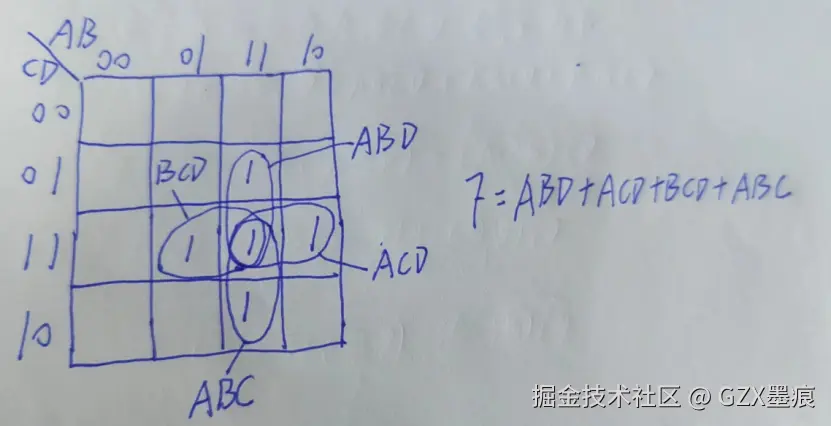 AB
CD 00 01 11 10
00
01 BCD 1 ABD
11 1 1 1 ACD
10 1
ABC
7=ABD+ACD+BCD+ABC
掘金技术社区 @ GZX墨痕